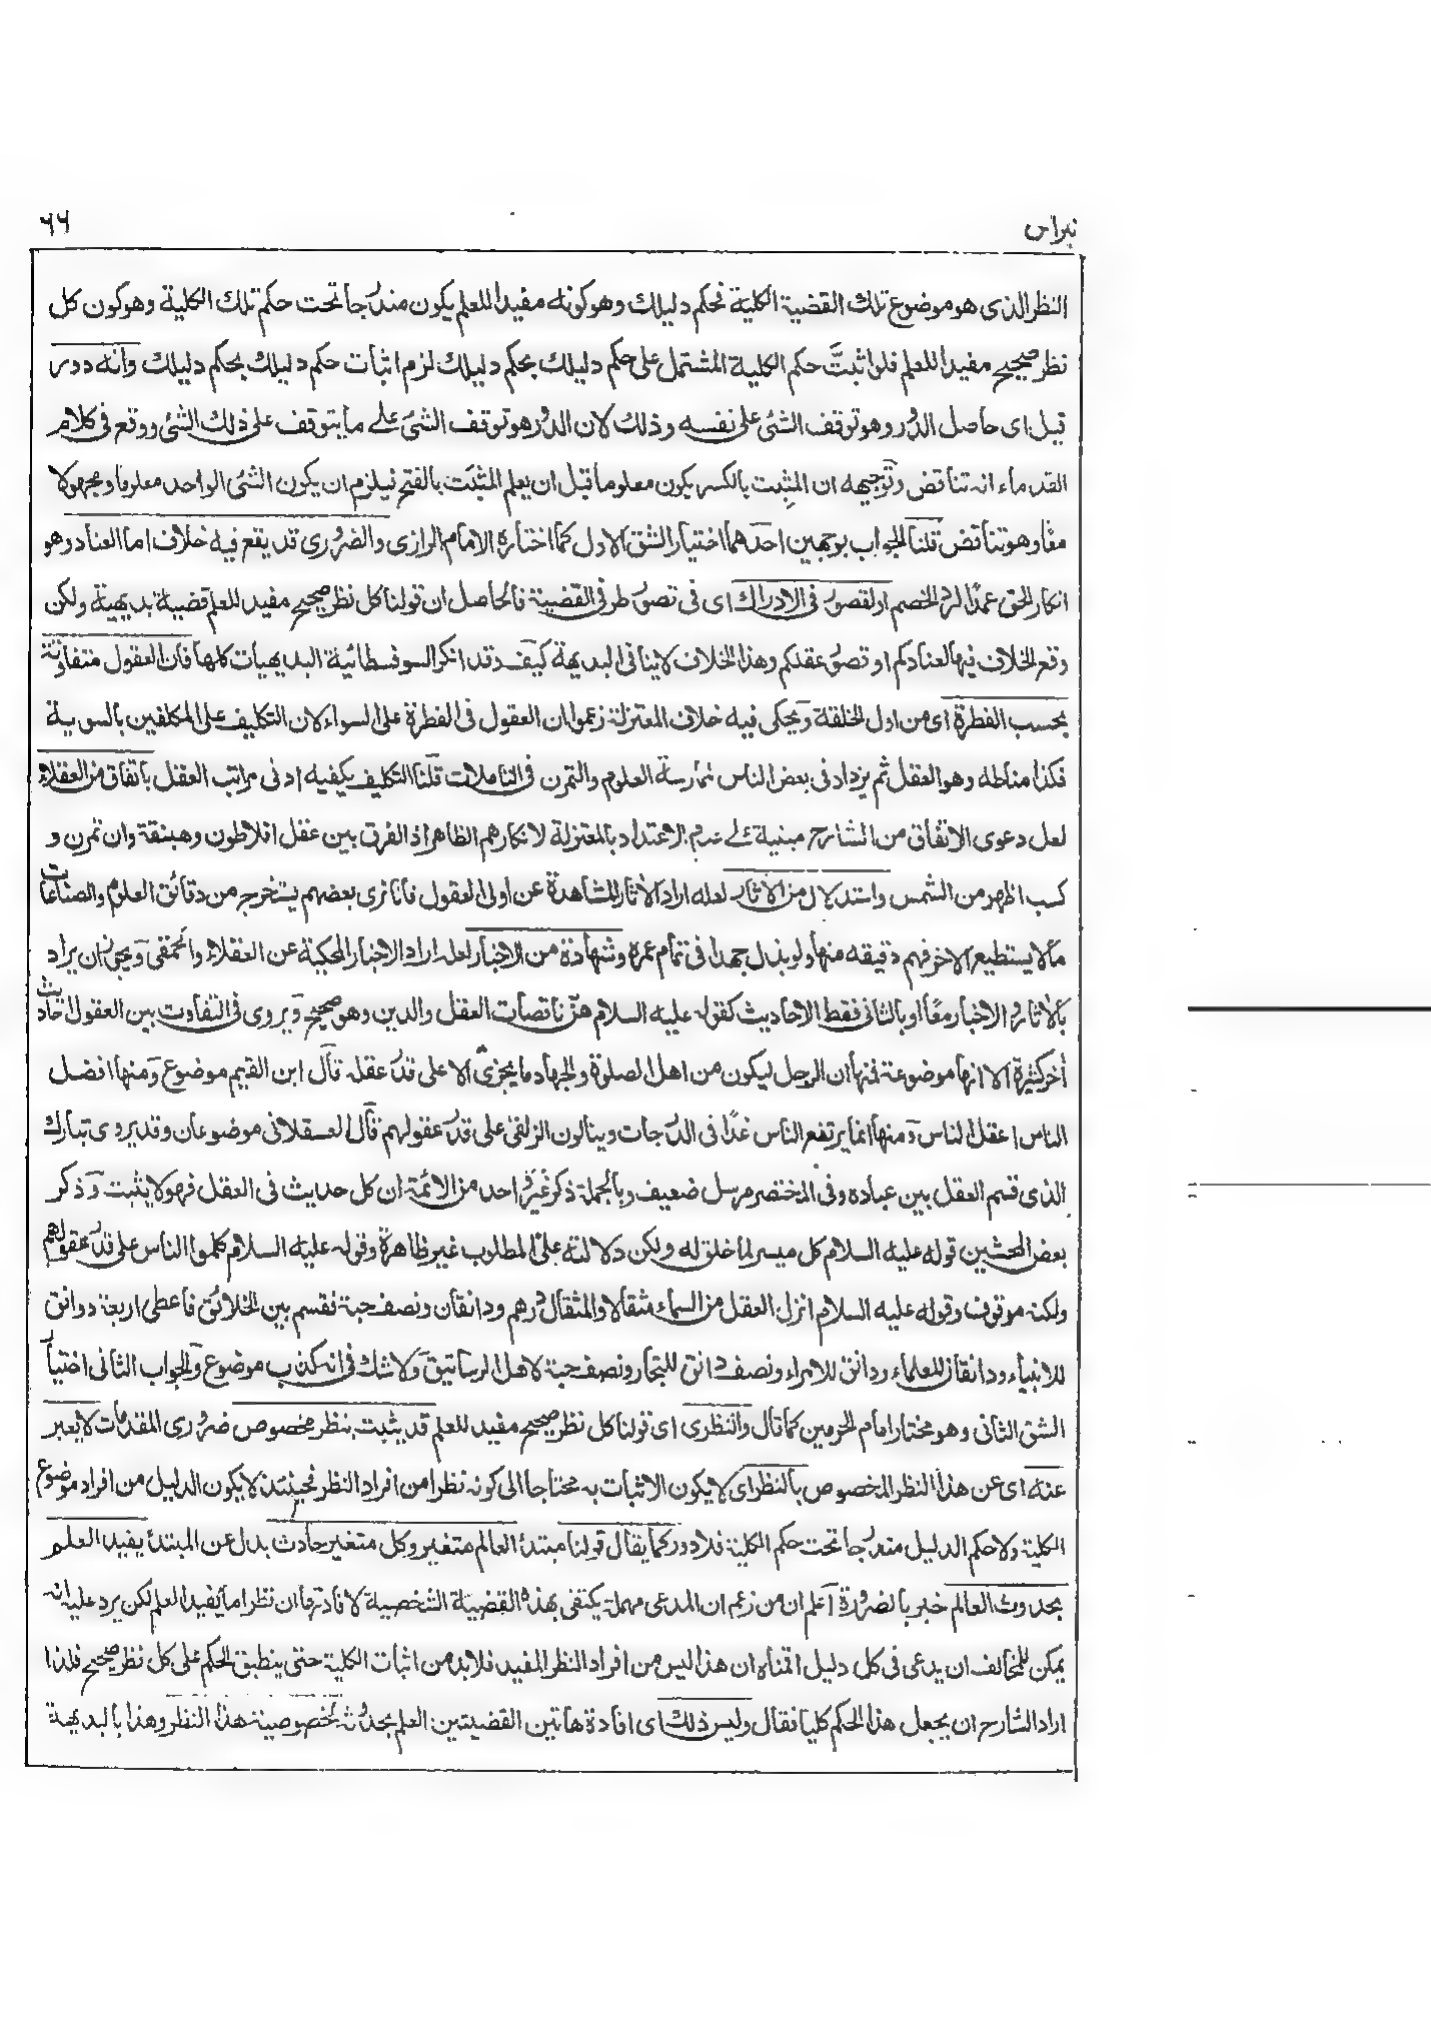 نبراس
٦٦
النظر الذى هو موضوع تلك القضية الكلية فحكم دليلك وهو كونه مفيدا للعلم يكون مندرجا تحت حكم تلك الكلية وهو كون كل
نظر صحيح مفيدا للعلم فلو اثبتّ حكم الكلية المشتمل على حكم دليلك بحكم دليلك لزم اثبات حكم دليلك بحكم دليلك وانه دور
قيل اى حاصل الدور وهو توقف الشئ على نفسه وذلك لان الدور هو توقف الشئ على ما يتوقف على ذلك الشئ ووقع فى كلام
القدماء انه تناقض وتوجيهه ان المثبِت بالكسر يكون معلوما قبل ان يعلم المثبَت بالفتح فيلزم ان يكون الشئ الواحد معلوما ومجهولا
معًا وهو تناقض قلنا الجواب بوجهين احدهما اختيار الشق الاول كما اختاره الامام الرازى والضرورى قد يقع فيه خلاف اما العناد وهو
انكار الحق عمدًا لرد الخصم او لقصور فى الادراك اى فى تصور طرفى القضية فالحاصل ان قولنا كل نظر صحيح مفيد للعلم قضية بديهية ولكن
وقع الخلاف فيها لعنادكم او قصور عقلكم وهذا الخلاف لا ينافى البديهة كيف وقد انكر السوفسطائية البديهيات كلها فان العقول متفاوتة
بحسب الفطرة اى من اول الخلقة ويحكى فيه خلاف المعتزلة زعموا ان العقول فى الفطرة على السواء لان التكليف على المكلفين بالسوية
فكذا مناطه وهو العقل ثم يزداد فى بعض الناس بممارسة العلوم والتمرن فى التاملات قلنا التكليف يكفيه ادنى مراتب العقل باتفاق من العقلاء
لعل دعوى الاتفاق من الشارح مبنية على عدم الاعتداد بالمعتزلة لانكارهم الظاهر اذ الفرق بين عقل افلاطون وهبنقة وان تمرن و
كسب اظهر من الشمس واستدلال من الاثار لعله اراد الاثار المشاهدة عن اولى العقول فانا نرى بعضهم يستخرج من دقائق العلوم والصناعات
ما لا يستطيع الاخر فهم دقيقه منها ولو بذل جهدا فى تمام عمره وشهادة من الاخبار لعله اراد الاخبار المحكية عن العقلاء والحمقى ويجوز ان يراد
بالاثار والاخبار معًا او بالثانى فقط الاحاديث كقوله عليه السلام هن ناقصات العقل والدين وهو صحيح ويروى فى التفاوت بين العقول احاديث
أخر كثيرة الا انها موضوعة فمنها ان الرجل ليكون من اهل الصلوة والجهاد ما يجزى الا على قدر عقله قال ابن القيم موضوع ومنها افضل
الناس اعقل الناس ومنها انما يرتفع الناس غدًا فى الدرجات وينالون الزلفى على قدر عقولهم قال العسقلانى موضوعان وقد يروى تبارك
الذى قسم العقل بين عباده وفى المختصر مرسل ضعيف وبالجملة ذكر غير واحد من الائمة ان كل حديث فى العقل فهو لا يثبت وذكر
بعض المحشين قوله عليه السلام كل ميسر لما خلق له ولكن دلالته على المطلوب غير ظاهرة وقوله عليه السلام كلموا الناس على قدر عقولهم
ولكنه موقوف وقوله عليه السلام انزل العقل من السماء مثقالا والمثقال درهم ودانقان ونصف حبة فقسم بين الخلائق فاعطى اربعة دوانق
للانبياء ودانقان للعلماء ودانق للامراء ونصف دانق للتجار ونصف حبة لاهل الرساتيق ولا شك فى انه كذب موضوع والجواب الثانى اختيار
الشق الثانى وهو مختار امام الحرمين كما قال والنظرى اى قولنا كل نظر صحيح مفيد للعلم قد يثبت بنظر مخصوص ضرورى المقدمات لا يعبر
عنه اى عن هذا النظر المخصوص بالنظر اى لا يكون الاثبات به محتاجا الى كونه نظرا من افراد النظر فحينئذ لا يكون الدليل من افراد موضوع
الكلية ولا حكم الدليل مندرجا تحت حكم الكلية فلا دور كما يقال قولنا مبتدأ العالم متغير وكل متغير حادث بدل عن المبتدأ يفيد العلم
بحدوث العالم خبر بالضرورة اعلم ان من زعم ان المدعى مهملة يكتفى بهذه القضية الشخصية لافادتها ان نظرا ما يفيد العلم لكن يرد عليه انه
يمكن للمخالف ان يدعى فى كل دليل اقمناه ان هذا ليس من افراد النظر المفيد فلابد من اثبات الكلية حتى ينطبق الحكم على كل نظر صحيح فلذا
اراد الشارح ان يجعل هذا الحكم كليا فقال وليس ذلك اى افادة هاتين القضيتين العلم بحدوثه لخصوصية هذا النظر وهذا بالبديهة